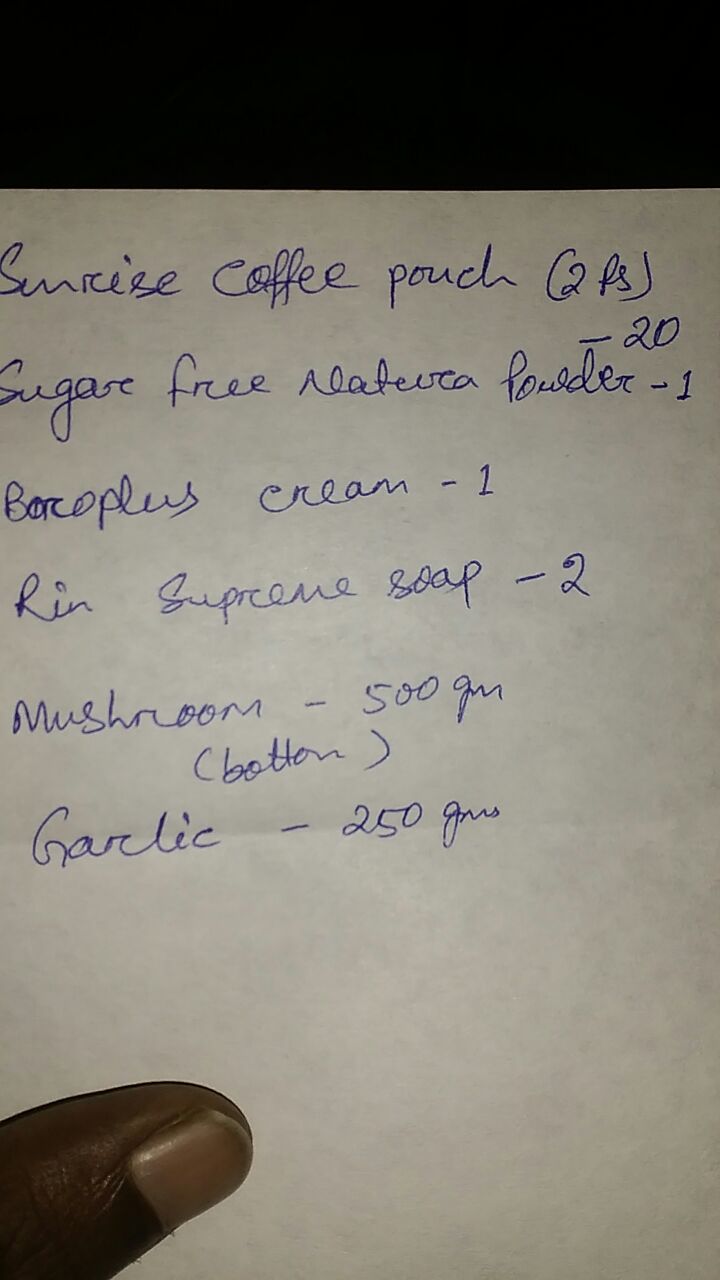 Sunrise Coffee pouch (2 Rs)
- 20
Sugar free Natura Powder - 1
Boroplus cream - 1
Rin Supreme soap - 2
Mushroom - 500 gm
(botton)
Garlic - 250 gms